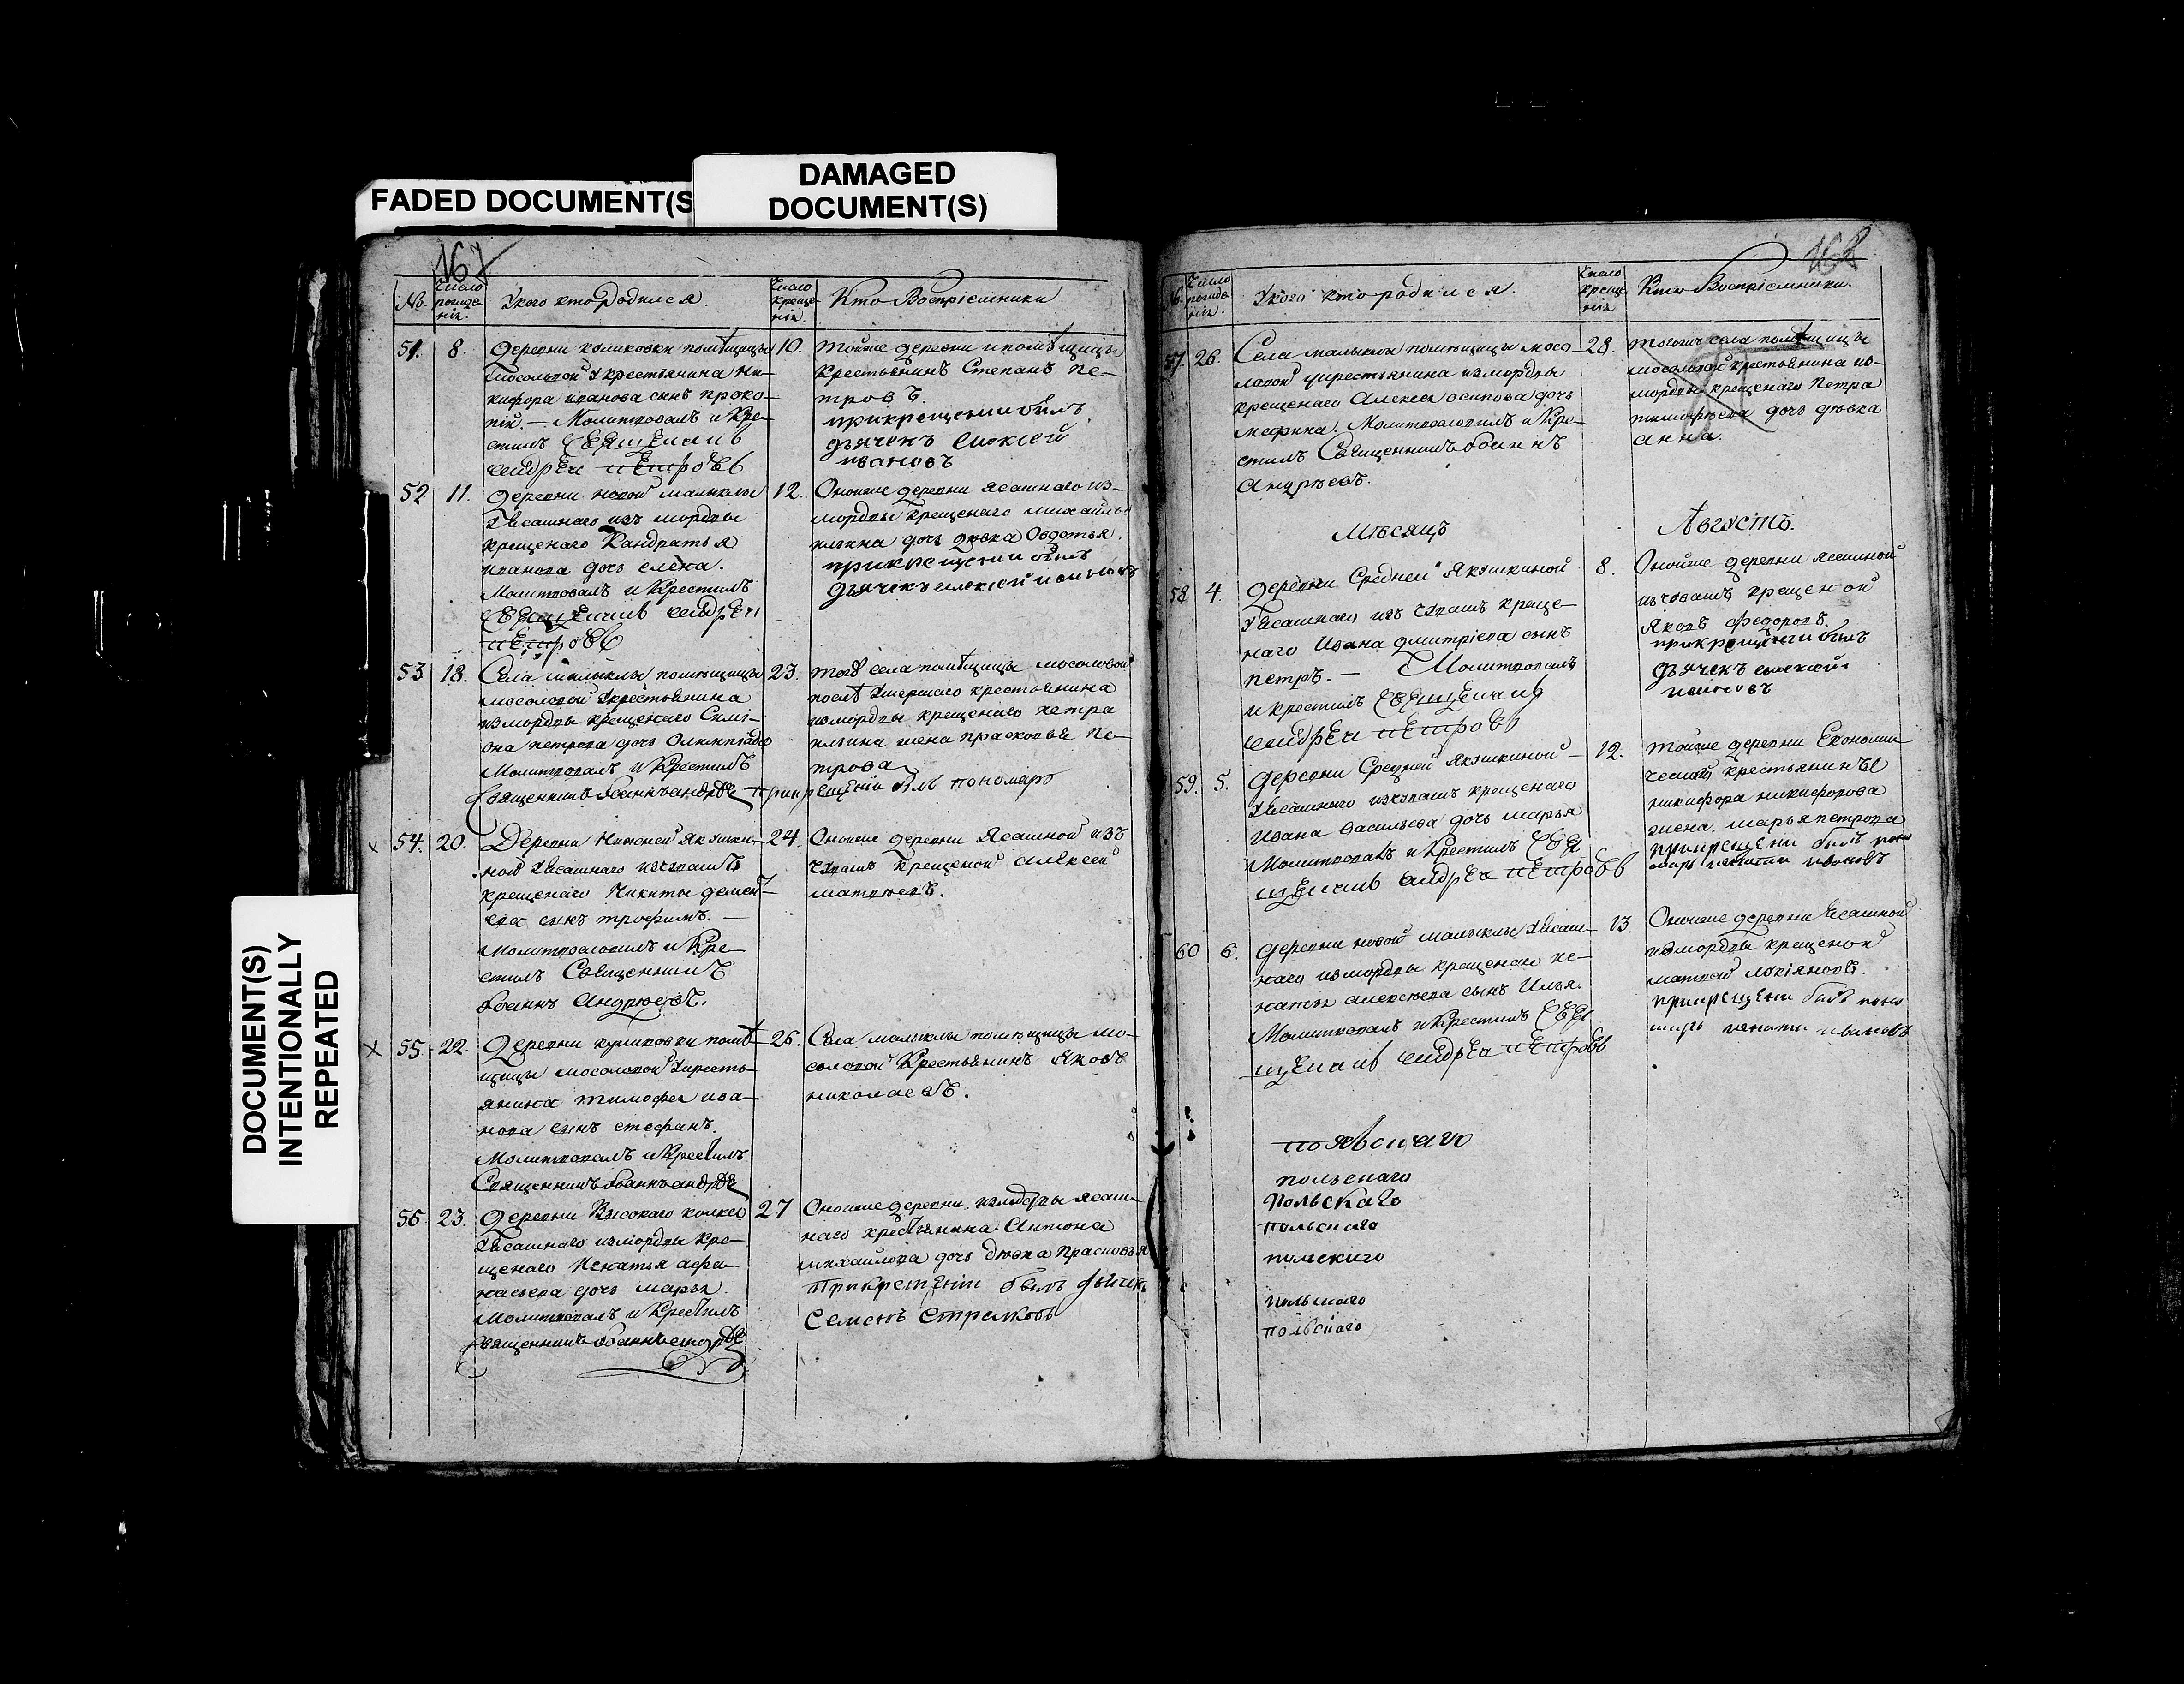 FADED DOCUMENT(S
DAMAGED
DOCUMENT(S)
DOCUMENT(S)
INTENTIONALLY
REPEATED
167
№.
Число рожде-нія.
У кого кто родился.
Число креще-нія.
Кто Воспріемники
51. 8.
деревни куликовки помѣщицы
мосоловой у крестьянина ни-
кифора иванова сынъ проко-
пій. — Молитвовалъ и Кре-
стилъ священникъ
андреи петровъ
10.
тойже деревни и помѣщицы
крестьянинъ Степанъ пе-
тровъ.
прикрещении былъ
дьячекъ алексей
ивановъ
52 11.
деревни новой малыклы
у Ясашнаго изъ мордвы
крещенаго Кандратья
иванова дочь елена.
Молитвовалъ и Крестилъ
священникъ андреи
петровъ
12.
Оноиже деревни ясашнаго из-
мордвы крещенаго михаила
ильина дочь девка Овдотья.
прикрещении былъ
дьячекъ алексей ивановъ
53 18.
Села малыклы помещицы
мосоловой у крестьянина
измордвы крещенаго Симі-
она петрова дочь Олимпіада
Молитвовалъ и Крестилъ
Священникъ Іоаннъ андрѣе
23.
тогѡ села помѣщицы мосоловой
послѣ умершаго крестьянина
измордвы крещенаго петра
ильина жена прасковья пе-
трова
прикрещеніи былъ пономарь
54. 20.
Деревни Нижней Якушки-
ной у Ясашнаго изчувашъ
крещенаго Никиты демен-
ева сынъ трофимъ. —
Молитвословилъ и Кре-
стилъ Священникъ
Іоаннъ Андреевъ.
24.
Оноиже деревни Ясашной изъ
чувашъ крещеной алексеи
матвеевъ.
55. 22.
Деревни куликовки помѣ-
щицы мосоловой у кресть-
янина тимофея ива-
нова сынъ стефанъ.
Молитвовалъ и Крестилъ
Священникъ Іоаннъ андрѣе
26.
Села малыклы помещицы мо-
соловой Крестьянинъ Яковъ
николаевъ.
56 23.
деревни Высокаго колка
у Ясашнаго измордвы кре-
щенаго Игнатья афа-
насьева дочь марья.
Молитвовалъ и Крестилъ
Священникъ Іоаннъ андрѣе
27
Оноиже деревни измордвы ясаш-
наго крестьянина Антона
михаилова дочь девка прасковья
Прикрещении былъ дьячекъ
Семенъ Стрелковъ
168
Число рожде-нія.
У кого кто родился.
Число креще-нія
Кто Воспріемники.
57. 26.
Села малыклы помещицы мосо-
ловой у крестьянина измордвы
крещенаго Алексея осипова дочь
марина. Молитвословилъ и Кре-
стилъ Священникъ Іоаннъ
Андреевъ.
28.
тогоже села помѣщицы
мосоловой крестьянина из-
мордвы крещенаго Петра
тимофеева дочь девка
анна.
Месяцъ
Августъ.
58 4.
деревни Средней Якушкиной
у Ясашнаго изъ чувашъ креще-
наго Ивана дмитріева сынъ
петръ. — Молитвовалъ
и крестилъ священникъ
андреи петровъ
8.
Оноиже деревни ясашной
изчувашъ крещеной
Яковъ федоровъ.
прикрещении былъ
дьячекъ алексей
ивановъ
59. 5.
деревни Средней Якушкиной
у Ясашнаго изчувашъ крещенаго
Ивана Васильева дочь марья
Молитвовалъ и Крестилъ свя
щенникъ андреи петровъ
12.
тойже деревни Економи-
ческой крестьянина
никифора никифорова
жена марья петрова
прикрещени былъ поно
марь игнатий ивановъ
60 6.
деревни новой малыклы у Ясаш-
наго измордвы крещенаго иг-
натья алексеева сынъ Илья.
Молитвовалъ и Крестилъ свя
щенникъ андреи петровъ
13.
Оноиже деревни Ясашной
измордвы крещеной
матвей лукіяновъ.
прикрещени былъ поно
марь игнати ивановъ
польскаго
польскаго
польскаго
польскаго
польскиго
польскаго
польскаго